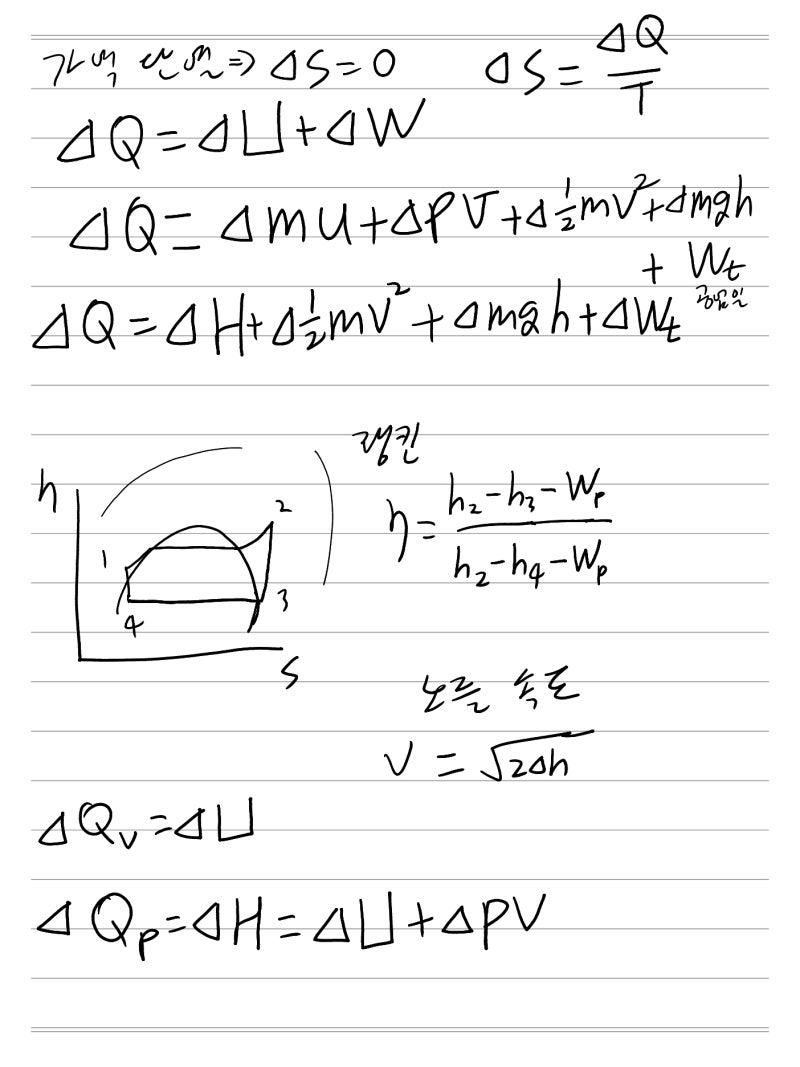 가역 단열 ⇒ ΔS=0 ΔS = ΔQ/T
ΔQ=ΔU+ΔW
ΔQ= ΔmU+ΔPV+Δ1/2mv²+Δmgh
+ Wt
공업일
ΔQ=ΔH+Δ1/2mv²+Δmgh+ΔWt
랭킨
h
1
2
3
4
S
η= (h₂-h₃-Wp)/(h₂-h₄-Wp)
노즐 속도
V = √2Δh
ΔQv=ΔU
ΔQp=ΔH=ΔU+ΔPV